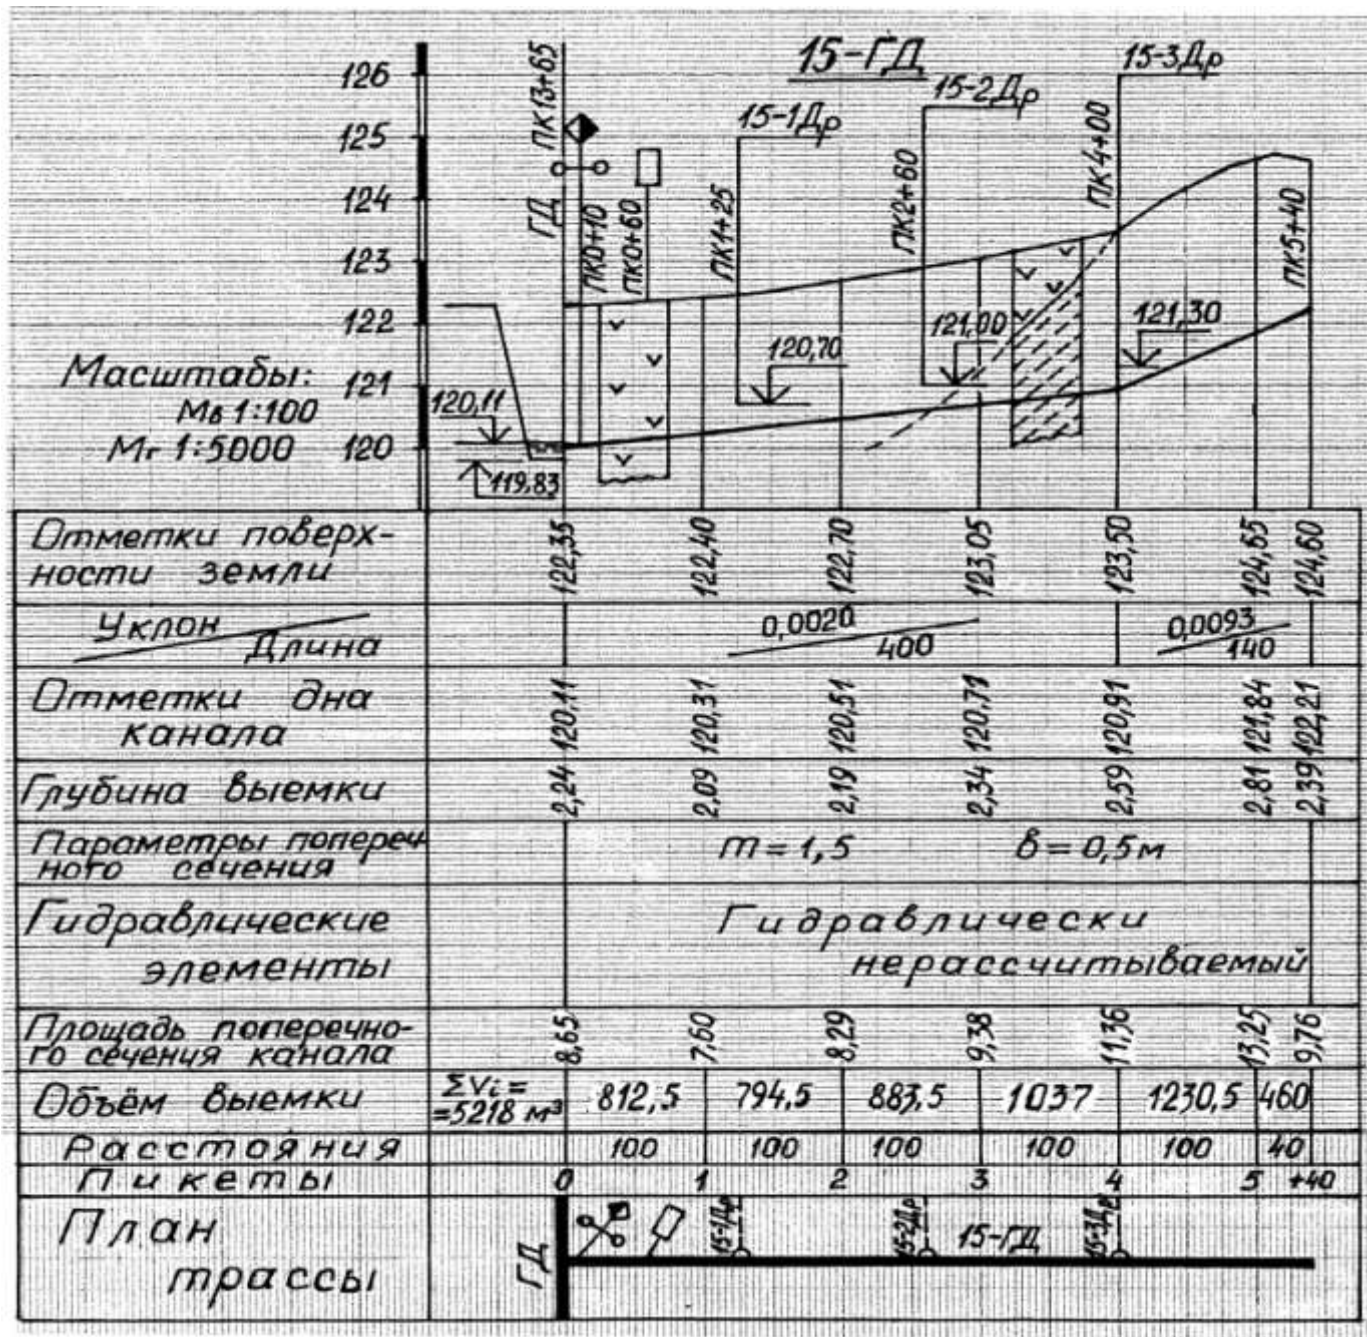 15-ГД
126
125
124
123
122
121
120
Масштабы:
Мв 1:100
Мг 1:5000
ПК13+65
ГД
ПК0+10
ПК0+60
15-1Др
ПК1+25
15-2Др
ПК2+60
15-3Др
ПК4+00
ПК5+40
120,11
119,83
120,70
121,00
121,30
Отметки поверх-
ности земли
122,35 122,40 122,70 123,05 123,50 124,65 124,60
Уклон
Длина
0,0020
400
0,0093
140
Отметки дна
канала
120,11 120,31 120,51 120,71 120,91 121,84 122,21
Глубина выемки
2,24 2,09 2,19 2,34 2,59 2,81 2,39
Параметры попереч
ного сечения
m = 1,5 в = 0,5 м
Гидравлические
элементы
Гидравлически
нерассчитываемый
Площадь поперечно-
го сечения канала
8,65 7,60 8,29 9,38 11,36 13,25 9,76
Объём выемки
ΣVi =
=5218 м³
812,5 794,5 883,5 1037 1230,5 460
Расстояния
100 100 100 100 100 40
Пикеты
0 1 2 3 4 5 +40
План
трассы
ГД
15-1Др
15-2Др
15-ГД
15-3Др